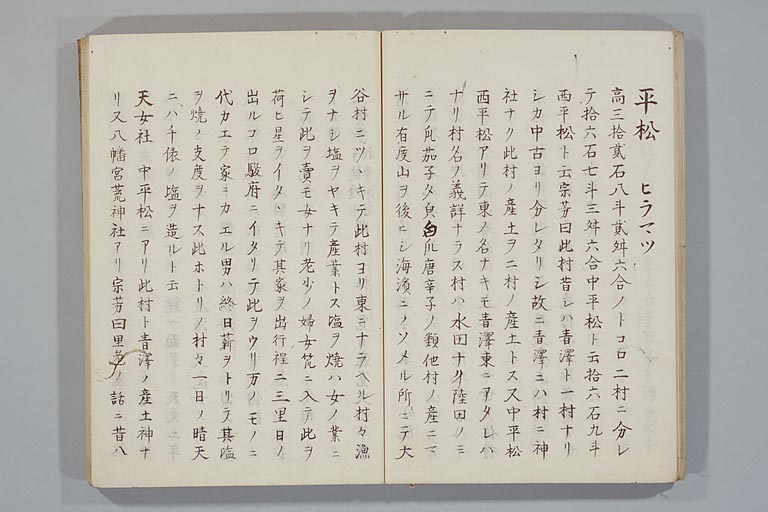 平松 ヒラマツ
高三拾貳石八斗貳舛六合ノトコロ二村ニ分レ
テ拾六石七斗三舛六合中平松ト云拾六石九斗
西平松ト云宗芳曰此村昔シハ青澤ト一村ナリ
シカ中古ヨリ分レタリシ故ニ青澤ニハ村ニ神
社ナク此村ノ産土ヲ二村ノ産土トス又中平松
西平松アリテ東ノ名ナキモ青澤東ニアタレハ
ナリ村名ノ義詳ナラス村ハ水田ナク陸田ノミ
ニテ茄子夕白瓜唐辛子ノ類他村ノ産ニマ
サル有度山ヲ後ニシ海濱ニノソメル所ニテ大
谷村ニツヽキテ此村ヨリ東ニナラヘル村々漁
ヲナシ塩ヲヤキテ産業トス塩ヲ焼ハ女ノ業ニ
シテ此ヲ賣モ女ナリ老少ノ婦女笊ニ入テ此ヲ
荷ヒ星ヲイタヽキテ其家ヲ出行程二三里日ノ
出ルコロ駿府ニイタリテ此ヲウリ万ノモノニ
代カエテ家ニカエル男ハ終日薪ヲトリテ其塩
ヲ焼ノ支度ヲナス此ホトリノ村々一日ノ晴天
ニハ千俵ノ塩ヲ造ルト云
天女社 中平松ニアリ此村ト青澤ノ産土神ナ
リ又八幡宮荒神社アリ宗芳曰里老ノ話ニ昔八